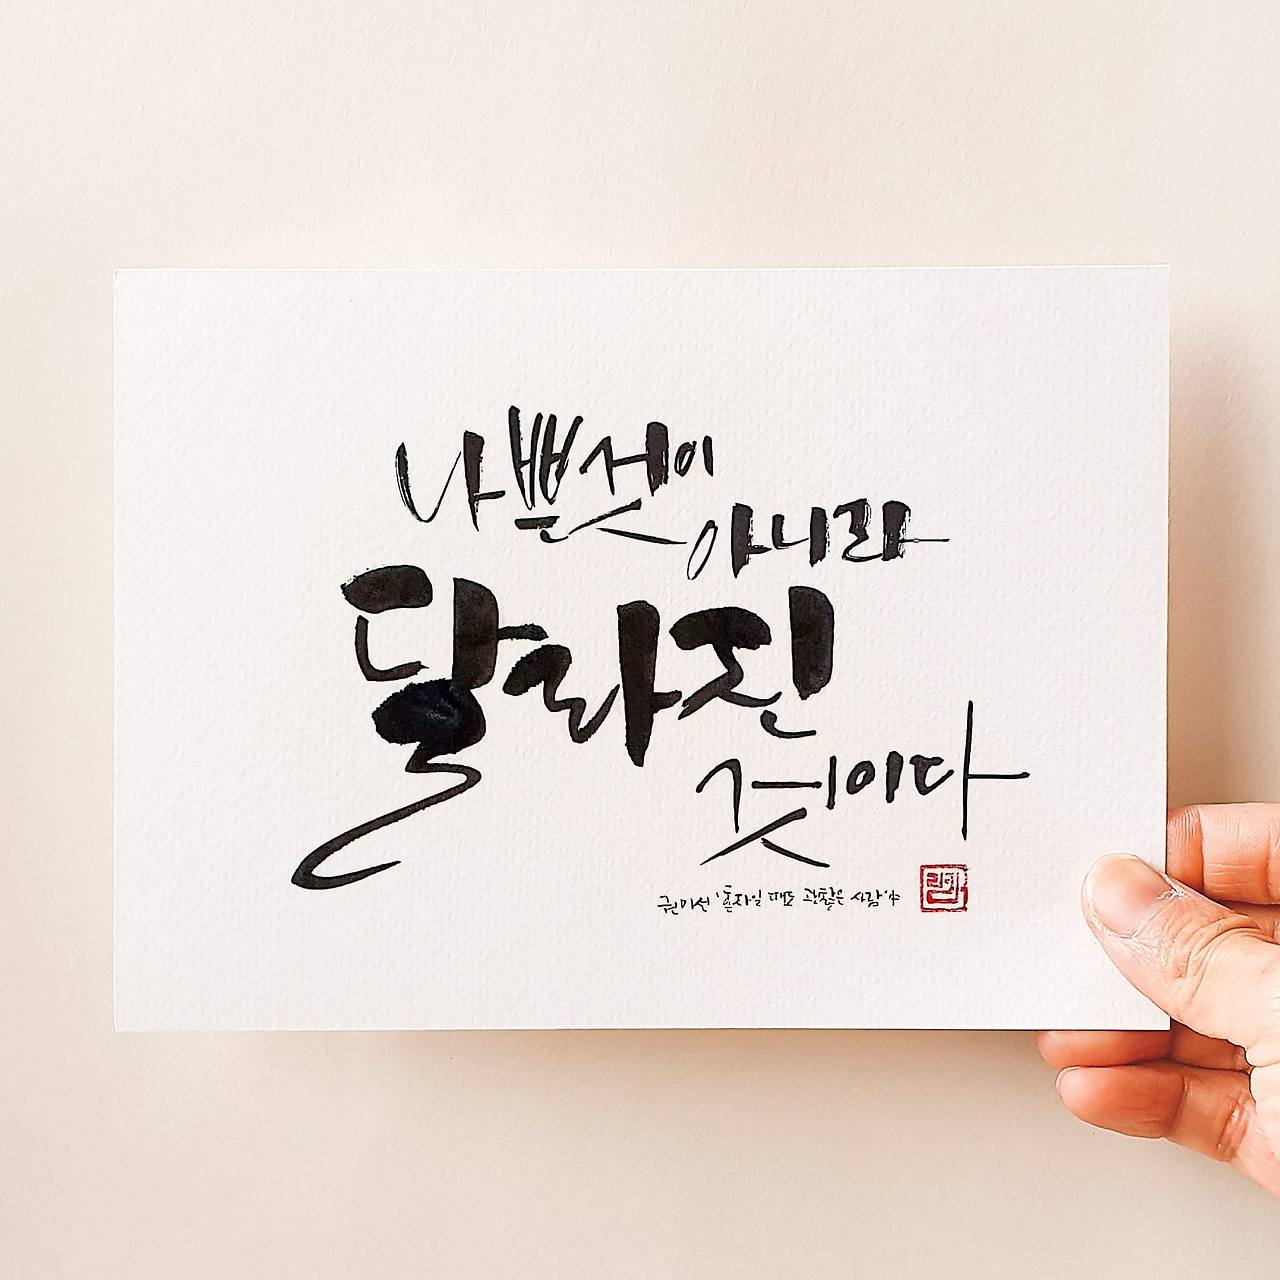 나쁜것이
아니라
달라진
것이다
권미선 '혼자일 때도 괜찮은 사람' 中